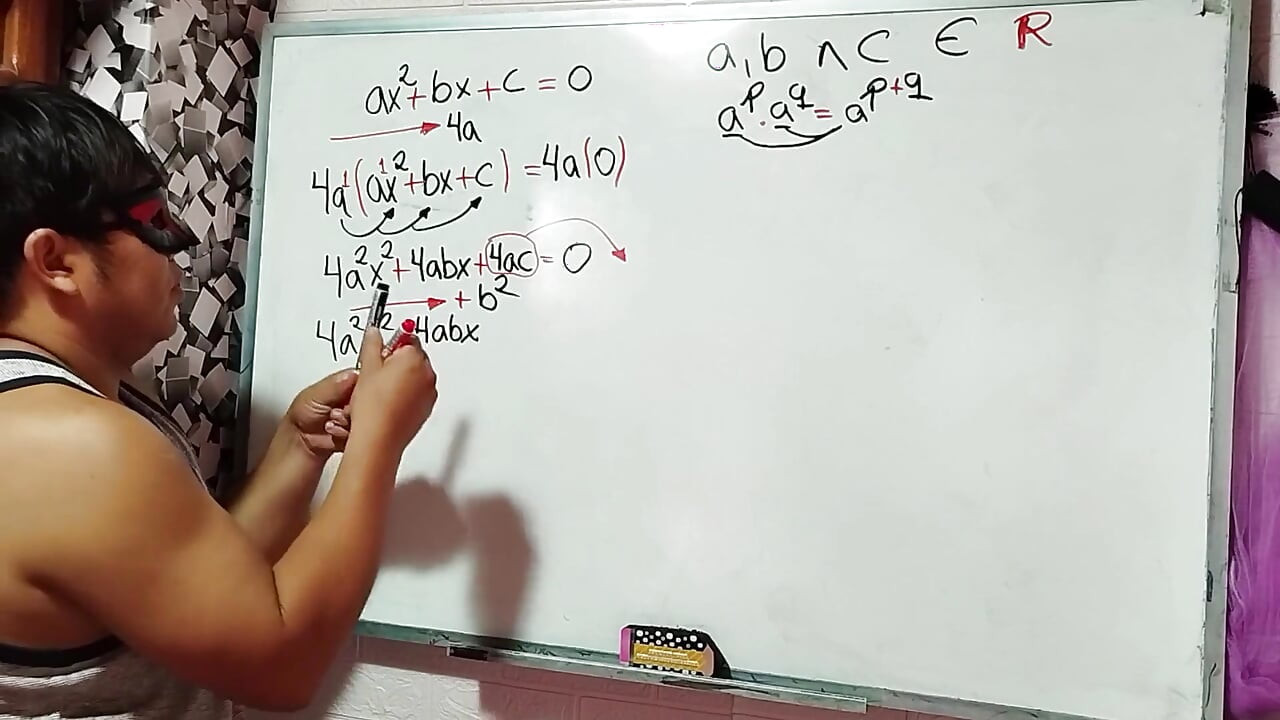 ax²+bx+c=0
4a
4a¹(a¹x²+bx+c)=4a(0)
4a²x²+4abx+4ac=0
+b²
4a² ² 4abx
a,b ∧ C ∈ R
a^p·a^q=a^p+q